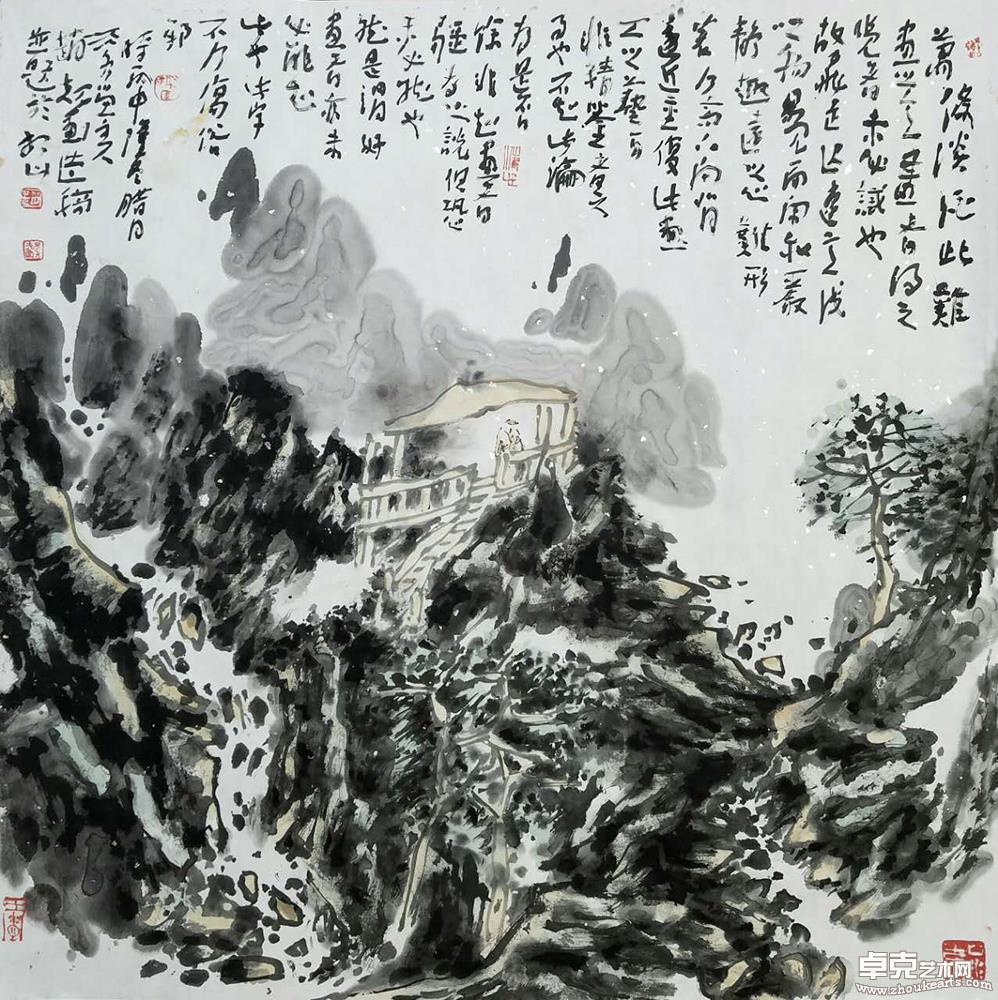 蕭條淡泊此難
畫之意畫者得之
覽者未必識也
故飛走遲速意淺
之物易見而閑和嚴
靜趣遠之心難形
若乃高下向背
遠近重復此畫
工之藝耳
非精鑒者之
事也不知此論
為是不
餘非知畫者
強為之說但恐
未必然也
然是謂好
畫者亦未
必能知
此也此字
不乃傷俗
邪
時丙申隆冬臘月
堂主人
並題於
卓克艺术网
www.zhoukearts.com